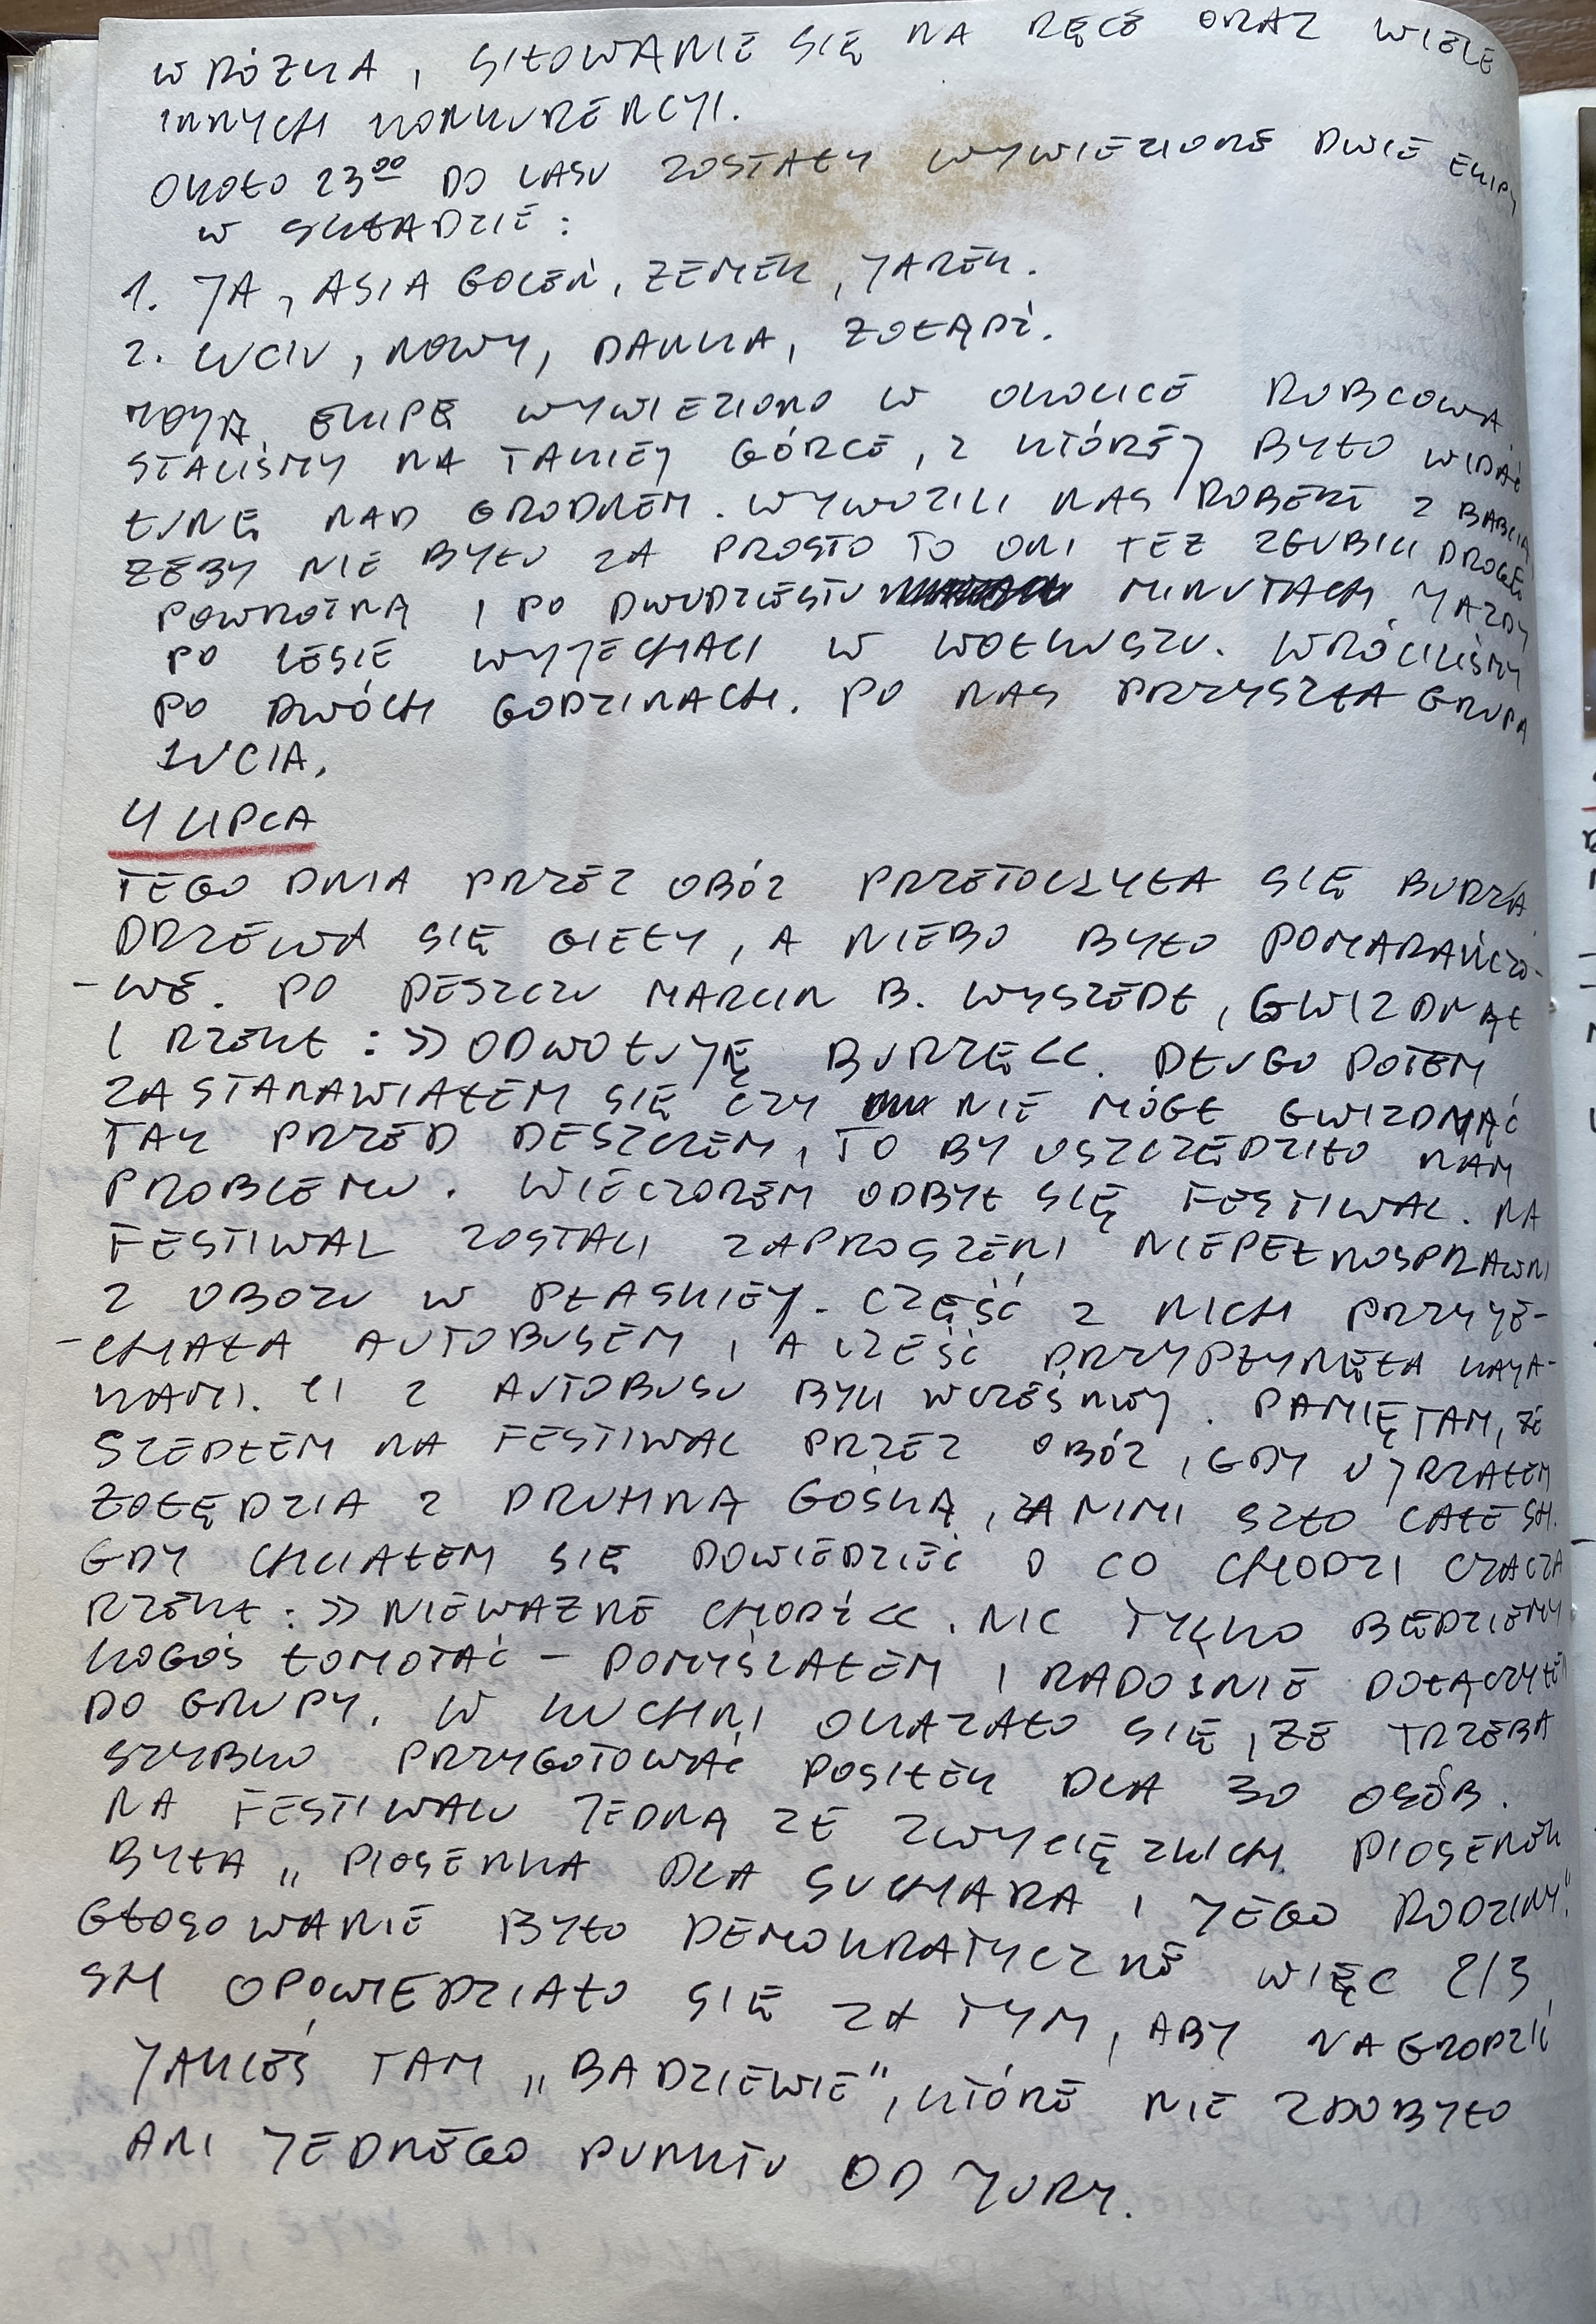 WRÓŻKA, SIŁOWANIE SIĘ NA RĘCE ORAZ WIELE
INNYCH KONKURENCYI.
OKOŁO 23⁰⁰ DO LASU ZOSTAŁY WYWIEZIONE DWIE EKIPY
W SKŁADZIE:
1. JA, ASIA GOLEŃ, ZEMEK, JAREK.
2. LUCIU, NOWY, DANKA, ŻOŁĄDŹ.
MOJĄ EKIPĘ WYWIEZIONO W OKOLICE RUBCOWA
STALIŚMY NA TAKIEJ GÓRCE, Z KTÓREJ BYŁO WIDAĆ
ŁUNĘ NAD GRODNEM. WYWOZILI NAS ROBERT Z BABCIĄ
ŻEBY NIE BYŁO ZA PROSTO TO ONI TEŻ ZGUBILI DROGĘ
POWROTNĄ I PO DWUDZIESTU MINUTACH JAZDY
PO LESIE WYJECHALI W WOŁKUSZU. WRÓCILIŚMY
PO DWÓCH GODZINACH. PO NAS PRZYSZŁA GRUPA
LUCIA.
4 LIPCA
TEGO DNIA PRZEZ OBÓZ PRZETOCZYŁA SIĘ BURZA.
DRZEWA SIĘ GIEŁY, A NIEBO BYŁO POMARAŃCZO-
-WE. PO DESZCZU MARCIN B. WYSZEDŁ, GWIZDNĄŁ
I RZEKŁ: >> ODWOŁUJĘ BURZĘ<<. DŁUGO POTEM
ZASTANAWIAŁEM SIĘ CZY NIE MÓGŁ GWIZDNĄĆ
TAK PRZED DESZCZEM, TO BY USZCZĘDZIŁO NAM
PROBLEMU. WIECZOREM ODBYŁ SIĘ FESTIWAL. NA
FESTIWAL ZOSTALI ZAPROSZENI NIEPEŁNOSPRAWNI
Z OBOZU W PŁASKIEJ. CZĘŚĆ Z NICH PRZYJE-
-CHAŁA AUTOBUSEM, A CZĘŚĆ PRZYPŁYNĘŁA KAJA-
KAMI. CI Z AUTOBUSU BYLI WCZEŚNIEJ. PAMIĘTAM, ŻE
SZEDŁEM NA FESTIWAL PRZEZ OBÓZ, GDY UJRZAŁEM
ŻOŁĘDZIA Z DRUHNĄ GOŚKĄ, ZA NIMI SZŁO CAŁE SH.
GDY CHCIAŁEM SIĘ DOWIEDZIEĆ O CO CHODZI CZACZA
RZEKŁ: >> NIEWAŻNE CHODŹ<<. NIC TYLKO BĘDZIEMY
KOGOŚ ŁOMOTAĆ – POMYŚLAŁEM I RADOŚNIE DOŁĄCZYŁEM
DO GRUPY. W KUCHNI OKAZAŁO SIĘ, ŻE TRZEBA
SZYBKO PRZYGOTOWAĆ POSIŁEK DLA 30 OSÓB.
NA FESTIWALU JEDNĄ ZE ZWYCIĘZKICH PIOSENEK
BYŁA „PIOSENKA DLA SUCHARA I JEGO RODZINY."
GŁOSOWANIE BYŁO DEMOKRATYCZNE WIĘC 2/3
SH OPOWIEDZIAŁO SIĘ ZA TYM, ABY NAGRODZIĆ
JAKIEŚ TAM „BADZIEWIE", KTÓRE NIE ZDOBYŁO
ANI JEDNEGO PUNKTU OD JURY.